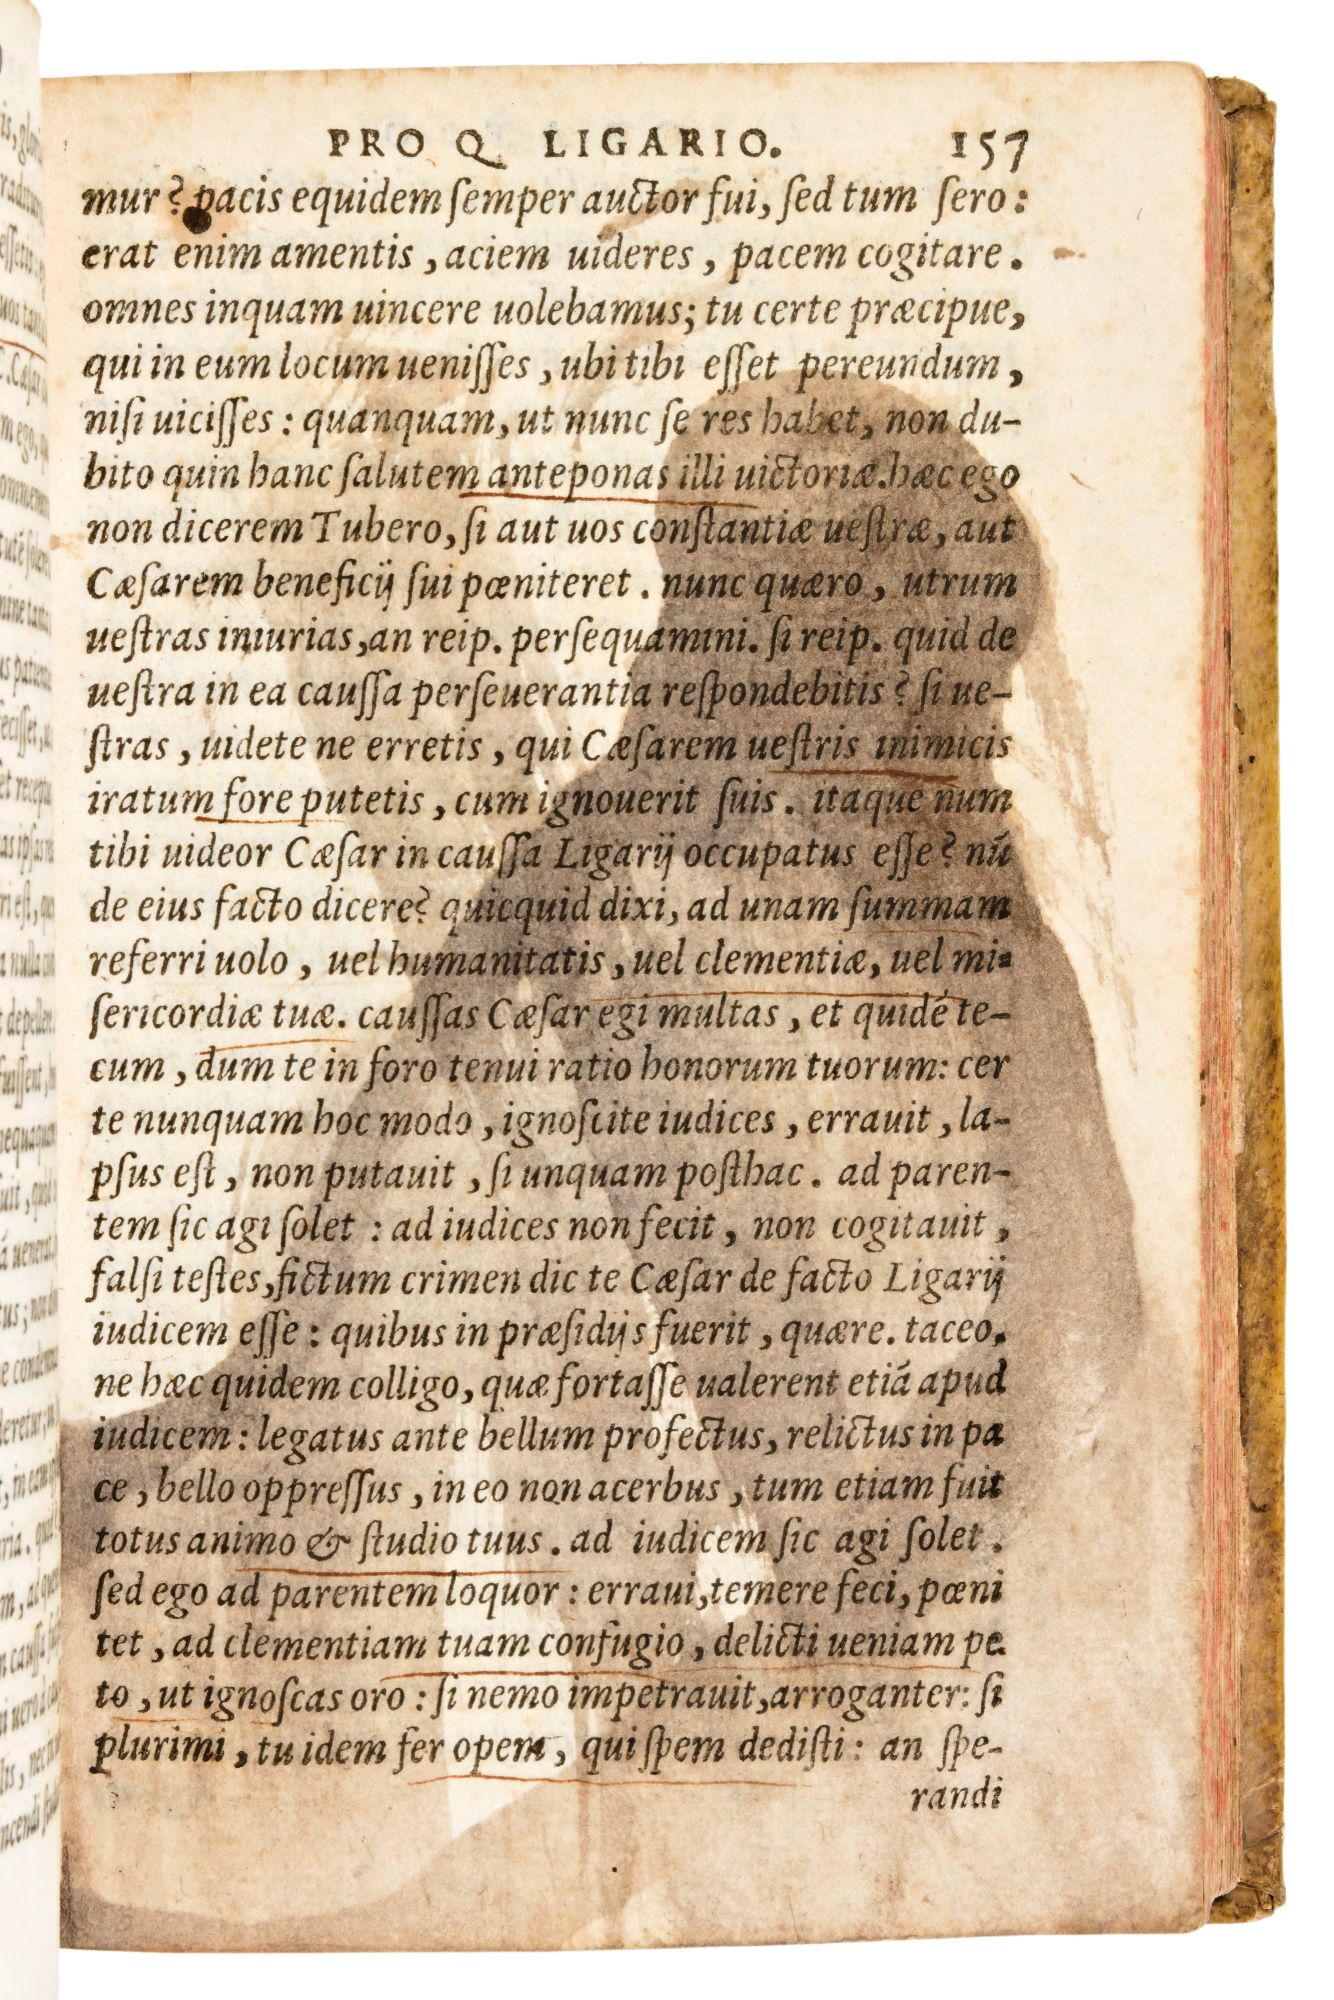 PRO Q. LIGARIO. 157
mur? pacis equidem ſemper auctor fui, ſed tum ſero:
erat enim amentis, aciem uideres, pacem cogitare.
omnes inquam uincere uolebamus; tu certe præcipue,
qui in eum locum ueniſſes, ubi tibi eſſet pereundum,
niſi uiciſſes: quanquam, ut nunc ſe res habet, non du-
bito quin hanc ſalutem anteponas illi uictoriæ. hæc ego
non dicerem Tubero, ſi aut uos conſtantiæ ueſtræ, aut
Cæſarem beneficij ſui pœniteret. nunc quæro, utrum
ueſtras iniurias, an reip. perſequamini. ſi reip. quid de
ueſtra in ea cauſſa perſeuerantia reſpondebitis? ſi ue-
ſtras, uidete ne erretis, qui Cæſarem ueſtris inimicis
iratum fore putetis, cum ignouerit ſuis. itaque num
tibi uideor Cæſar in cauſſa Ligarij occupatus eſſe? nū
de eius facto dicere? quicquid dixi, ad unam ſummam
referri uolo, uel humanitatis, uel clementiæ, uel mi-
ſericordiæ tuæ. cauſſas Cæſar egi multas, et quidē te-
cum, dum te in foro tenui ratio honorum tuorum: cer
te nunquam hoc modo, ignoſcite iudices, errauit, la-
pſus eſt, non putauit, ſi unquam poſthac. ad paren-
tem ſic agi ſolet: ad iudices non fecit, non cogitauit,
falſi teſtes, fictum crimen dic te Cæſar de facto Ligarij
iudicem eſſe: quibus in præſidijs fuerit, quære. taceo,
ne hæc quidem colligo, quæ fortaſſe ualerent etiā apud
iudicem: legatus ante bellum profectus, relictus in pa
ce, bello oppreſſus, in eo non acerbus, tum etiam fuit
totus animo & ſtudio tuus. ad iudicem ſic agi ſolet.
ſed ego ad parentem loquor: erraui, temere feci, pœni
tet, ad clementiam tuam confugio, delicti ueniam pe
to, ut ignoſcas oro: ſi nemo impetrauit, arroganter: ſi
plurimi, tu idem fer opem, qui ſpem dediſti: an ſpe-
randi